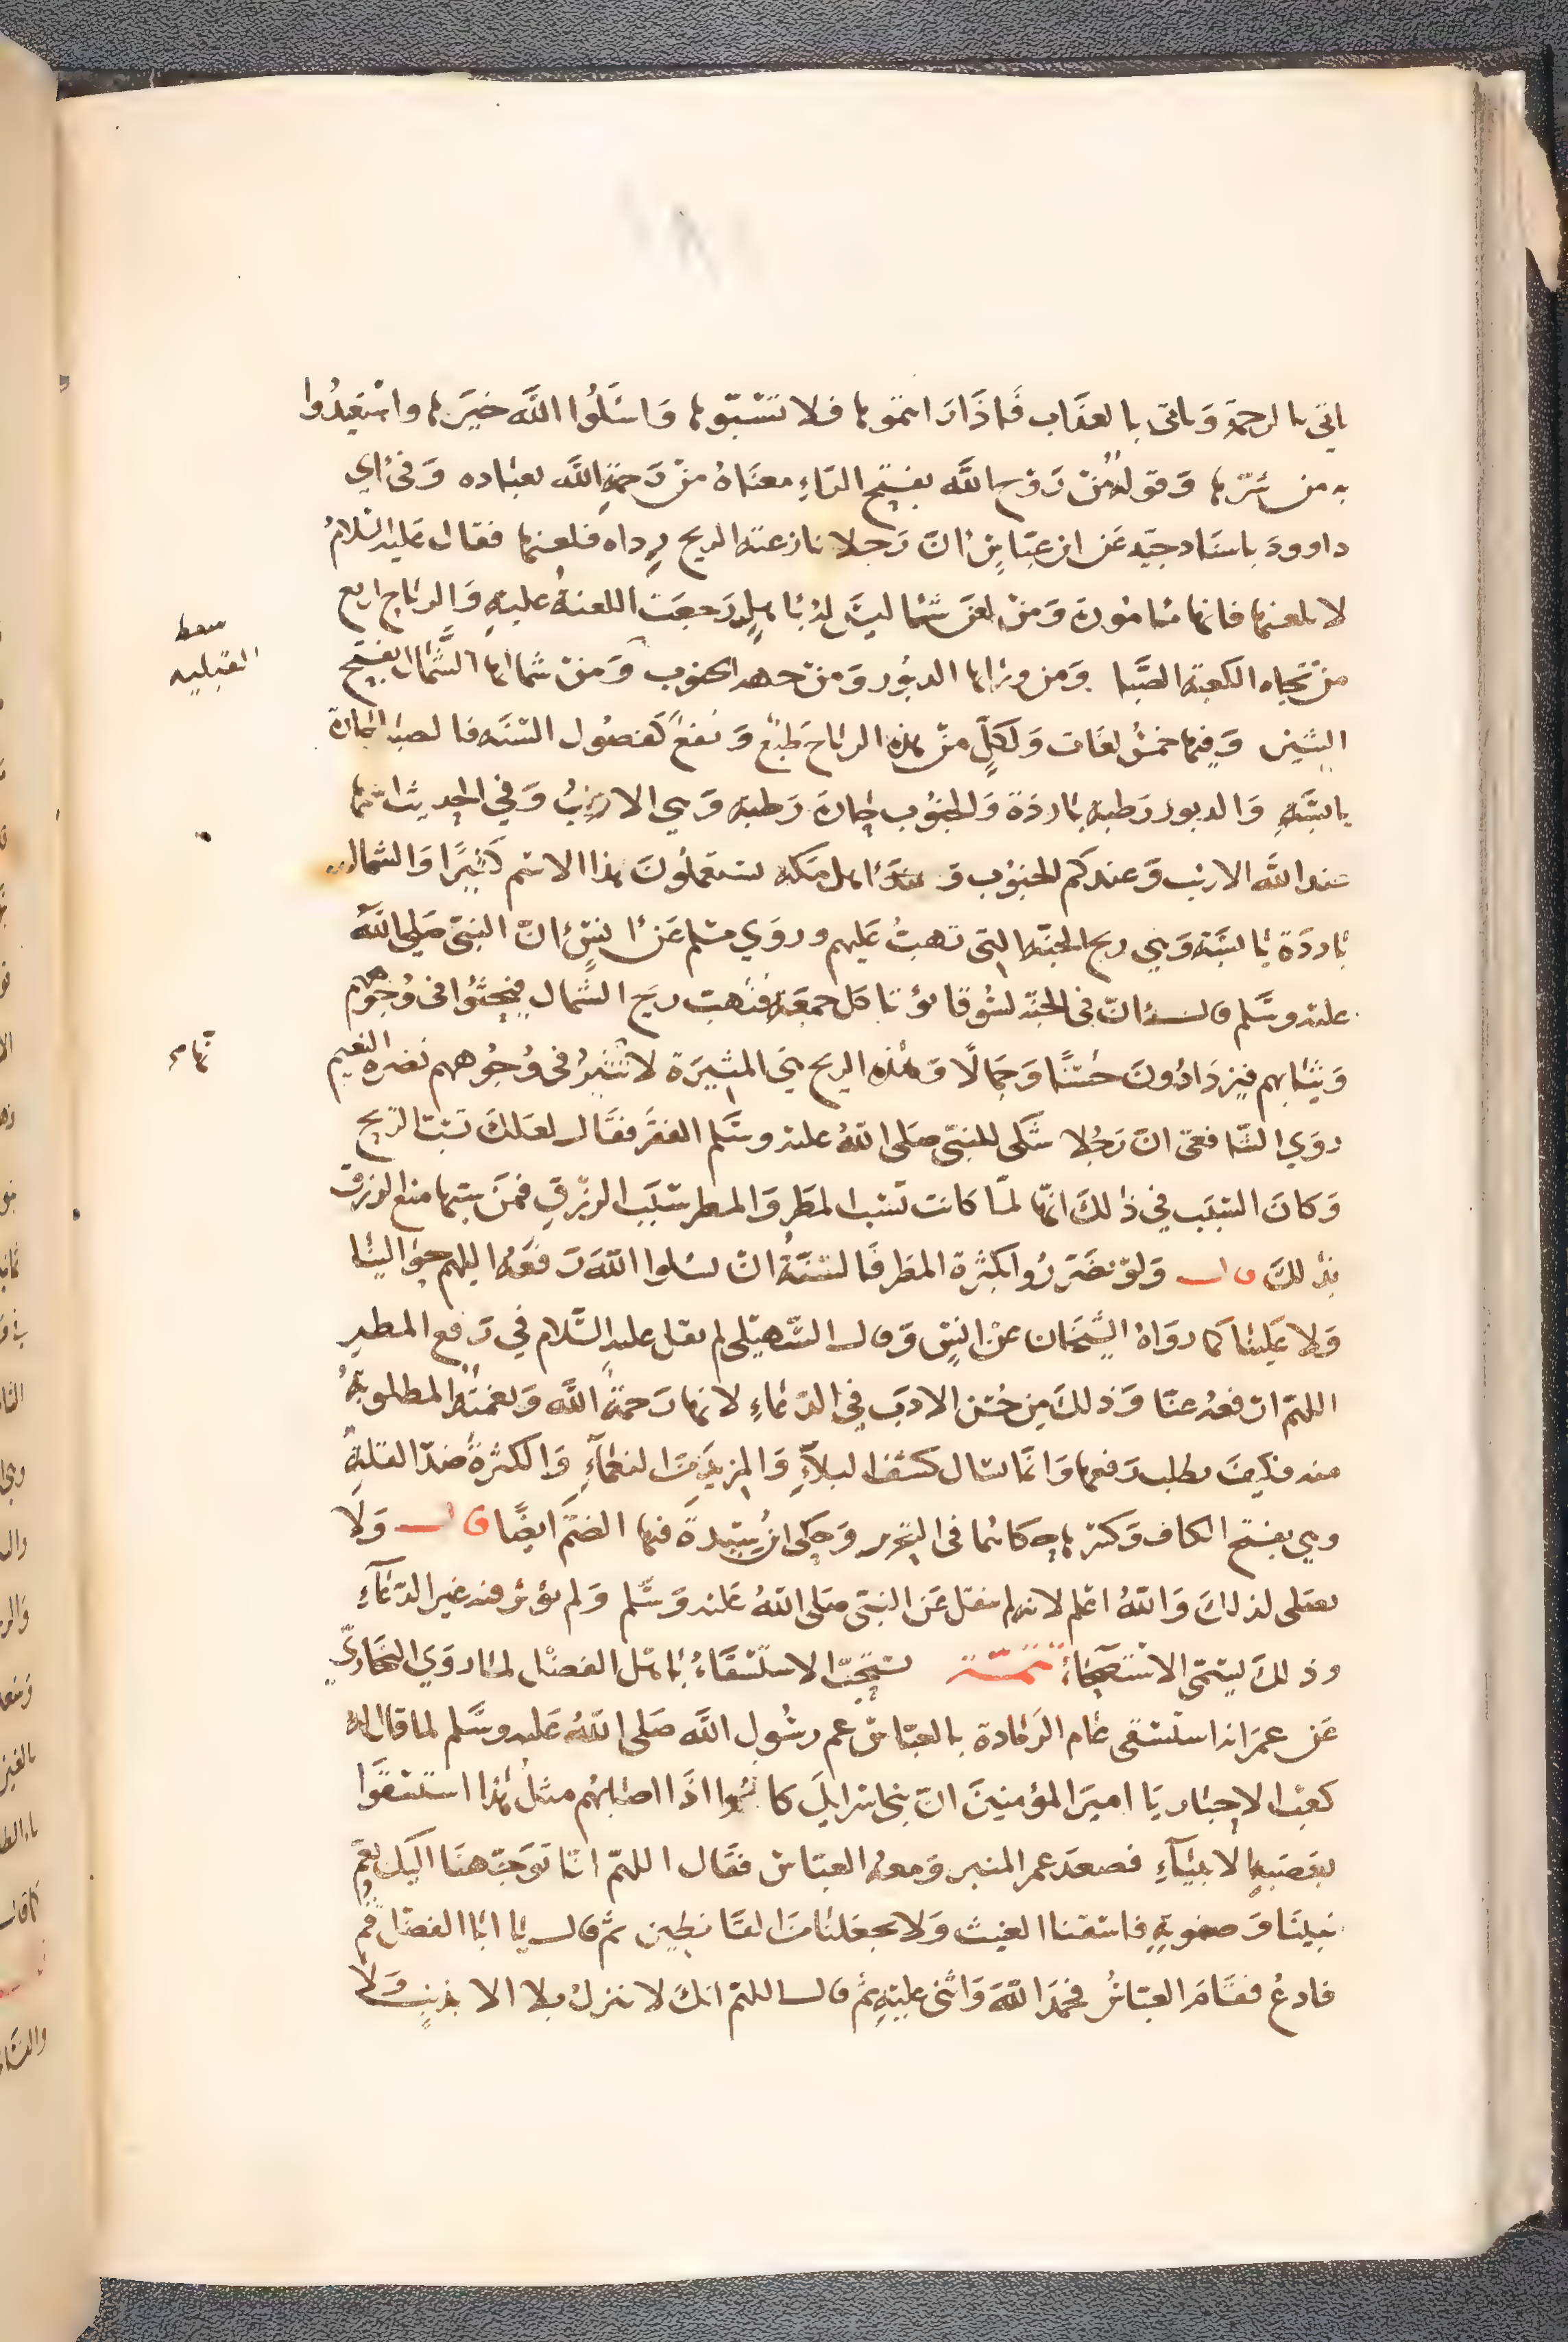 ياتي بالرحمة وَياتى بالعذَاب فَاذَا رَايتموها فلا تسُبّوها وَاسْئَلُوا اللَّه خيَرها واسْتعِيذُوا
به من شرّها وَقوله مِنْ رَوْح اللَّه بفتح الرَّاءِ معنَاهُ منْ رَحمَةِ اللَّه بعبَاده وَفى ابي
داوودَ باسنَاد جيّد عَن ابن عبّاسٍ انّ رَجلا نازعته الريح رِداه فلعنها فقال عَليْه السَّلامُ
لا تلعنها فانها مَامُورَة وَمنْ لعَن شيئا ليسَ لهُ باهلٍ رَجعَت اللعنةُ عليهِ وَالرياح اربع
منْ تجاه الكعبة الصَّبا وَمن ورَائها الدبُور وَمنْ جهة الجنوب وَمنْ شمالها الشَّمال بفتح
الشين وَفيها خمسُ لغَات وَلكلٍّ منْ هذه الرياح طبْعٌ وَنفعٌ كَفصُول السَّنَه فالصبَا حَارة
يابسَة وَالدبور رَطبة بَاردَة وَالجنُوب حَارة رَطبة وَهي الازيبُ وَفي الحديث اسمها
عند اللَّه الازيب وَعندكم الجنوُب وَ اهل مَكة يستعملُونَ هذا الاسْم كَثيرًا وَالشمال
بَاردَة يَابسَة وَهي ريح الجنّة التى تهبُ عَليهم وروَي مسْلم عَن انسٍ انّ النبىّ صَلى اللَّه
عليْه وسَّلم قال انّ فى الجنّة لسُوقا يؤتا كل جمعَة فتهب ريَح الشَّمال فيَحثُوا فى وُجوُههم
وَثيَابهم فيَزدَادُونَ حسْنًا وَجمَالًا وَهذه الريح هيَ المثيرَة لاتثيرُ فى وُجُوههم نضرة النعيم
روَي الشَّافعى انّ رَجُلا شَكى للنبىّ صلى اللَّهُ عليْه وسَّلم الفقرَ فقَال لعَلكَ تسُبّ الريح
وَكانَ السَّبَب فى ذٰلكَ انّها لمّا كانت تَسبب المطَر وَالمطر سَبَب الرزْقِ فمَنْ سبها منع الرزق
بذٰلكَ قال وَلوْ تضَرَرُوا بكثرة المطَر فَالسنَّةُ انْ يسْئلوا اللَّهَ رَفعَهُ اللهم حوَالينَا
وَلا عَلينَا كما روَاهُ الشَّيخَان عنْ انسٍ وَقال السُّهيْلى لم يقل عليه السَّلام في رَفع المطر
اللهمّ ارْفعهُ عنَّا وَذٰلكَ مِن حُسْن الادَب في الدّعَاءِ لانها رَحمَةُ اللَّه وَنعمتُهُ المطلوبةُ
منه فكَيفَ يطلب رَفعها وَانمَا يسَال كشف البلاَءِ وَالمزيدَ منَ النعْمَآءِ وَالكثرَةُ ضدّ القلةِ
وهي بفتح الكاف وَكسْرها حكاهُما فى التحْرير وَحكى ابنُ سِيْدَةَ فيها الضَّمّ ايضًا قال وَلَا
يصَلى لذٰلكَ وَاللَّهُ اعْلم لانه لم ينقل عَن النبىّ صَلى اللَّهُ عَليْه وَسّلم وَلم يؤثر فيه غير الدّعَآءِ
وذٰلكَ ليسَمّى الاسْتصحَاءُ تتمّة يسْتحبّ الاسْتسْقَاءُ باهْل الفضْل لمَا روَي البخَاريّ
عَن عمَر انه اسْتسْقى عَام الرَمَادة بالعبّاسْ عم رسُول اللَّه صَلى اللَّهُ عَليْه وسَّلم لما قال له
كعْب الاحبَار يَا اميرَ المؤمنينَ انّ بنى اسرايلَ كانوُا اذَا اصَابهُم مثلُ هٰذا اسْتسْقَوا
بعَصَبةِ الانبيَآءِ فصعدَ عمر المنبر وَمعه العبّاسْ فقَال اللهمّ انّا توَجّهنَا اليْكَ بعَمّ
نبيِنَا وَصنوِ ابيهِ فاسْقنا الغيث وَلا تجعَلنا منَ القَانِطِين ثم قال يَا ابَا الفضْل قُمْ
فادعُ فقَامَ العبّاسُ فحَمَدَ اللَّهَ وَاثنى عليْهِ ثم قال اللهمّ انكَ لا تنزلُ بلا الا بذنبٍ وَلَا
القبليه